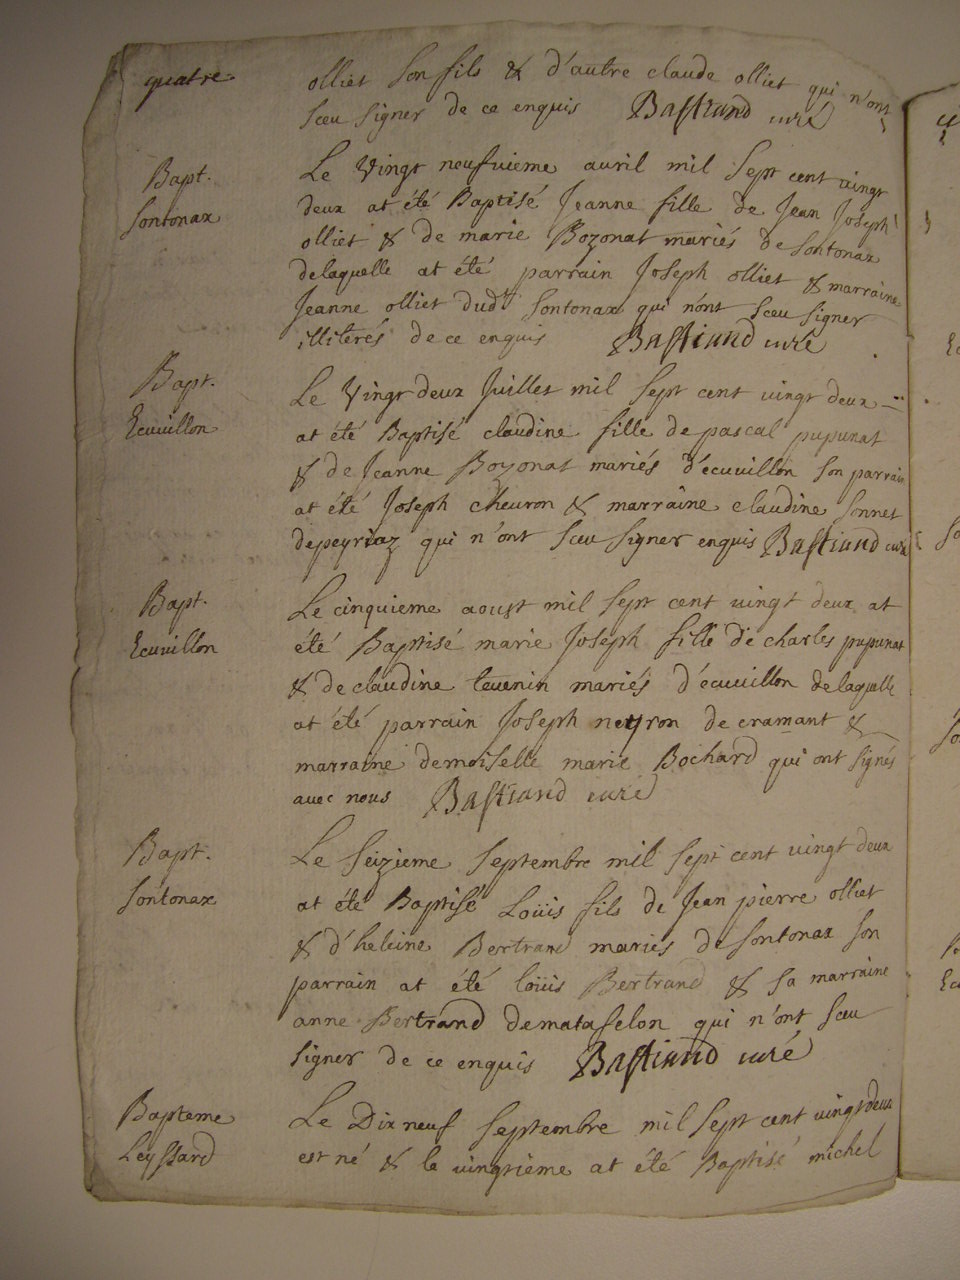 quatre
olliet son fils & d'autre claude olliet qui n'ont
sceu signer de ce enquis Bastiand curé
Bapt.
Sontonax
Le vingt neufvieme avril mil sept cent vingt
deux at été Baptisé Jeanne fille de Jean Joseph
olliet & de marie Bozonat mariés de Sontonax
delaquelle at été parrain Joseph olliet & marraine
Jeanne olliet dudt Sontonax qui n'ont sceu signer
illiterés de ce enquis Bastiand curé
Bapt.
Ecuvillon
Le vingt deux Juillet mil sept cent vingt deux
at été Baptisé claudine fille de pascal pupunat
& de Jeanne Bozonat mariés d'écuvillon son parrain
at été Joseph chevron & marraine claudine sonnet
depeyriaz qui n'ont sceu signer enquis Bastiand curé
Bapt.
Ecuvillon
Le cinquieme aoust mil sept cent vingt deux at
été Baptisé marie Joseph fille de charles pupunat
& de claudine tevenin mariés d'écuvillon delaquelle
at été parrain Joseph neyron de cramant &
marraine demoiselle marie Bochard qui ont signés
avec nous Bastiand curé
Bapt.
Sontonax
Le seizieme septembre mil sept cent vingt deux
at été Baptisé Loüis fils de Jean pierre olliet
& d'heleine Bertrand mariés de Sontonax son
parrain at été loüis Bertrand & sa marraine
anne Bertrand demataselon qui n'ont sceu
signer de ce enquis Bastiand curé
Bapteme
Leyssard
Le Dix neuf septembre mil sept cent vingt deux
est né & le vingtieme at été Baptisé michel